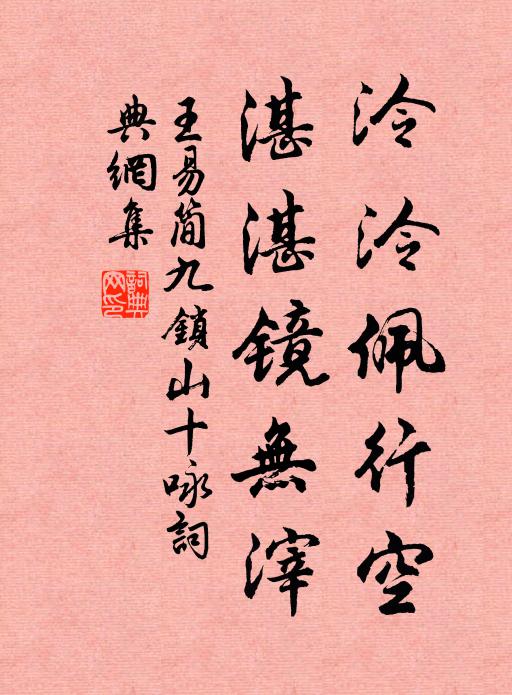 泠泠佩行空
湛湛镜無滓
王易简九鎖山十咏詞
典網集
詞典
网印